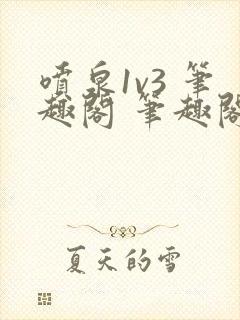 噴泉1v3 筆
趣閣 筆趣閣
夏天的雪